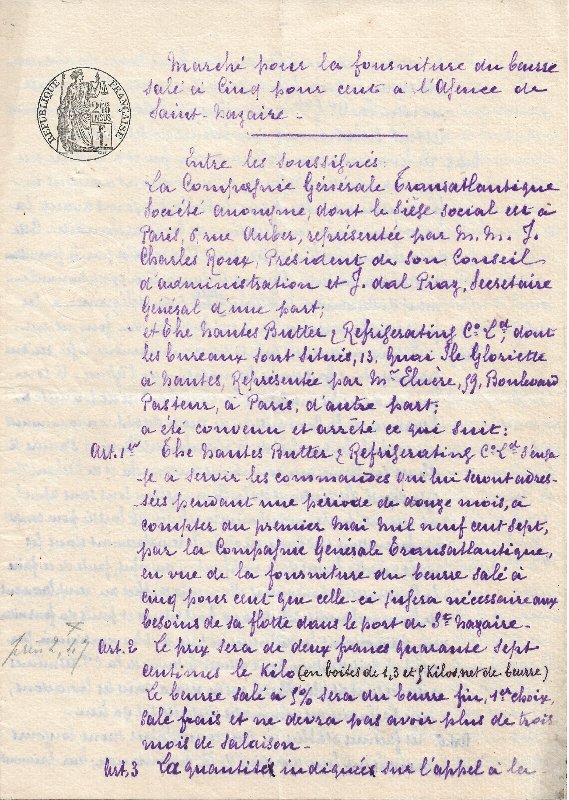 Marché pour la fourniture du beurre
salé à Cinq pour cent à l'Agence de
Saint-Nazaire -
RÉPUBLIQUE FRANÇAISE
Entre les soussignés
La Compagnie Générale Transatlantique
Société anonyme, dont le Siège social est à
Paris, 6, rue Auber, représentée par M.M. J.
Charles Roux, Président de son Conseil
d'administration et J. dal Piaz, Secretaire
Général d'une part;
et The Nantes Butter & Refrigerating Co Ld, dont
les bureaux sont situés, 13, Quai Ile Gloriette
à Nantes, Représentée par Mr Eluère, 59, Boulevard
Pasteur, à Paris, d'autre part;
a été convenu et arrêté ce qui suit:
Art. 1er The Nantes Butter & Refrigerating Co Ld s'enga
ge à servir les commandes qui lui seront adres-
sées pendant une période de douze mois, à
compter du premier Mai Mil neuf cent sept,
par la Compagnie Générale Transatlantique,
en vue de la fourniture du beurre salé à
cinq pour cent que celle-ci jugera nécessaire aux
besoins de sa flotte dans le port de St Nazaire -
Art. 2 Le prix sera de deux francs quarante sept
centimes le Kilo (en boîtes de 1, 3 et 5 Kilos, net de beurre)
Le beurre salé à 5% sera du beurre fin, 1er choix,
salé frais et ne devra pas avoir plus de trois
mois de salaison -
Art. 3 La quantité indiquée sur l'appel à la